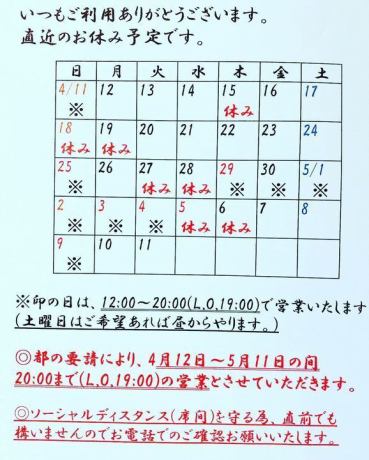 いつもご利用ありがとうございます。
直近のお休み予定です。
日 月 火 水 木 金 土
4/11 12 13 14 15 16 17
※ 休み
18 19 20 21 22 23 24
休み 休み
25 26 27 28 29 30 5/1
※ 休み 休み ※ ※ ※
2 3 4 5 6 7 8
※ ※ ※ 休み 休み
9 10 11
※
※印の日は、12:00～20:00(L,O,19:00)で営業いたします
(土曜日はご希望あれば昼からやります。)
◎都の要請により、4月12日～5月11日の間
20:00まで(L,O,19:00)の営業とさせていただきます。
◎ソーシャルディスタンス(席間)を守る為、直前でも
構いませんのでお電話でのご確認お願いいたします。